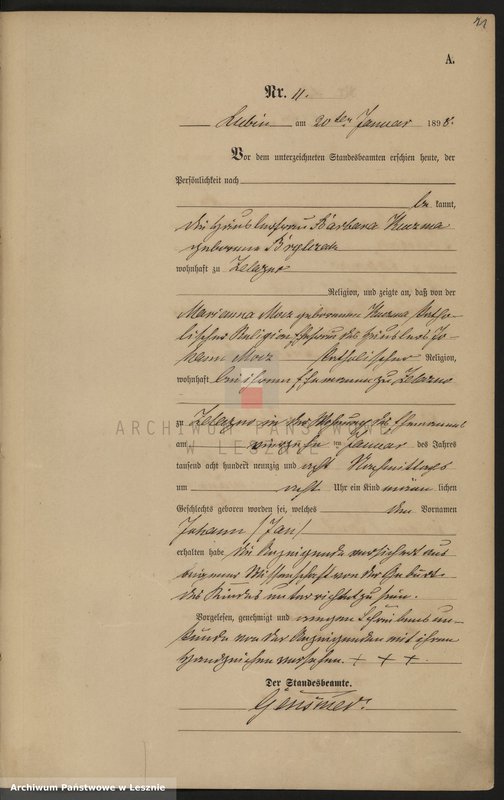 21
A.
Nr. 11.
Lubin am 20ten Januar 1898.
Vor dem unterzeichneten Standesbeamten erschien heute, der
Persönlichkeit nach
be kannt,
die Häuslerfrau Barbara Kuzma
geborene
wohnhaft zu Zelazno
Religion, und zeigte an, daß von der
Marianna geborenen Kuzma katho-
lischer Religion, Ehefrau des Häuslers Jo-
hann katholischer Religion,
wohnhaft bei ihrem Ehemanne zu Zelazno
zu Zelazno in der Wohnung des Ehemannes
am vierzehn ten Januar des Jahres
tausend acht hundert neunzig und acht Nachmittags
um acht Uhr ein Kind männ lichen
Geschlechts geboren worden sei, welches den Vornamen
Johann /Jan/
erhalten habe. Die Anzeigende versichert aus
eigener Wissenschaft von der Geburt
des Kindes unterrichtet zu sein.
Vorgelesen, genehmigt und wegen Schreibensun-
kunde von der Anzeigenden mit ihrem
Handzeichen versehen. + + +.
Der Standesbeamte.
ARCHIWUM PAŃSTWOWE
W LESZNIE
Archiwum Państwowe w Lesznie